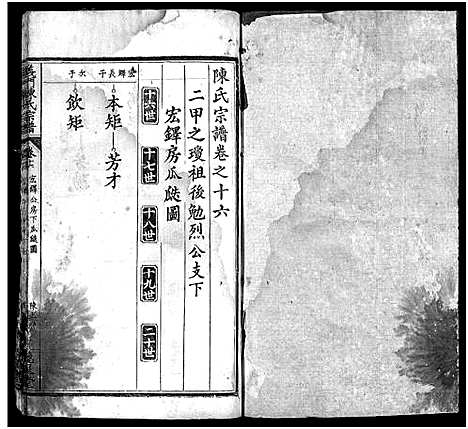 陳氏宗譜卷之十六
二甲之瓊祖後勉烈公支下
宏鐸房瓜瓞圖
十六世 十七世 十八世 十九世 二十世
宏鐸長子 本矩 芳才
次子 欽矩
義門陳氏宗譜 卷十六 宏鐸公房下瓜瓞圖